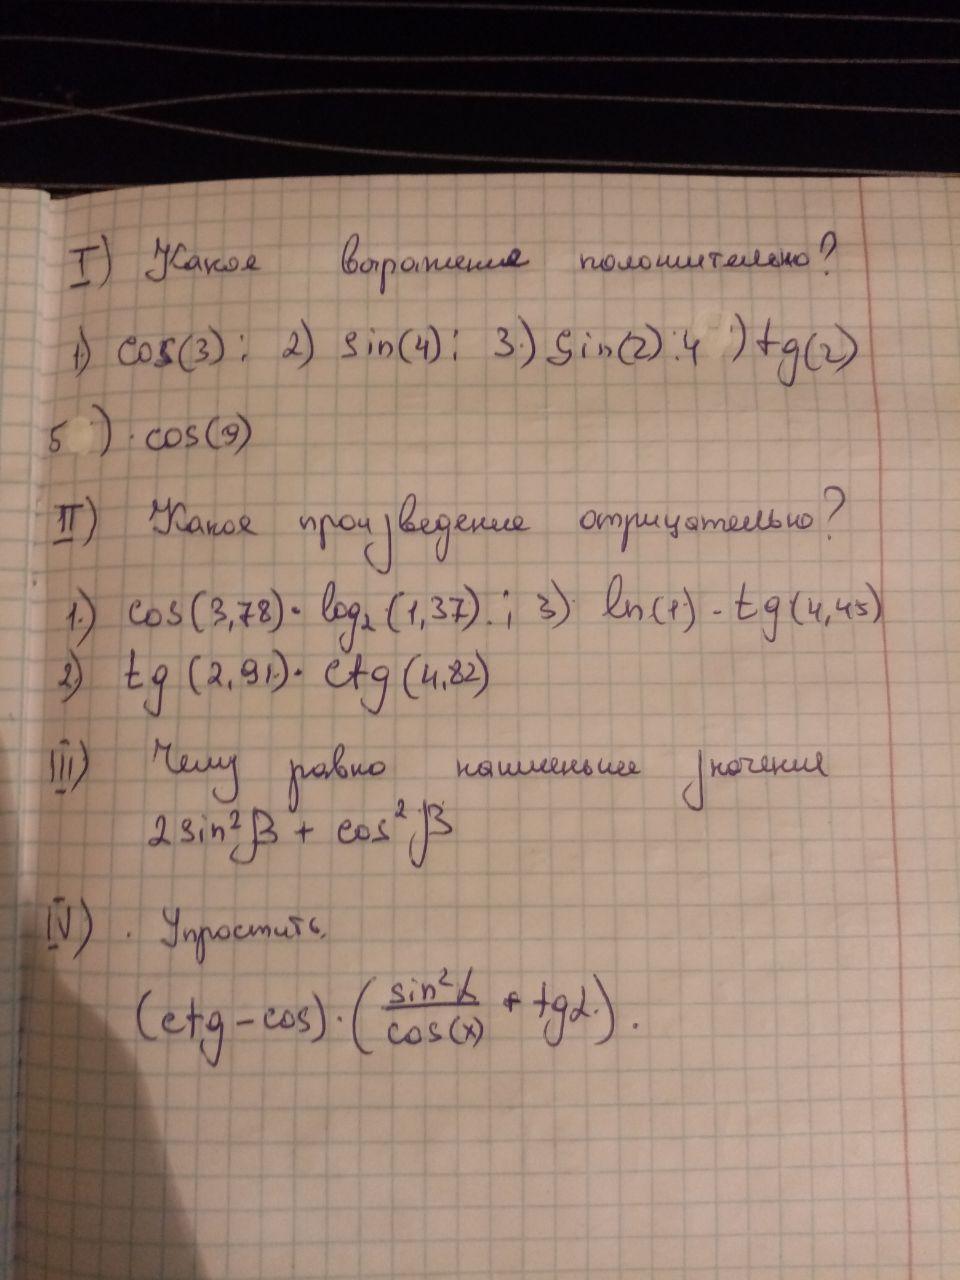 I) Какое выражение положительно?
1) cos(3); 2) sin(4); 3.) sin(2); 4 ) tg(2)
5 ) cos(9)
II) Какое произведение отрицательно?
1.) cos(3,78) · log₂(1,37).; 3) ln(1) · tg(4,45)
2) tg(2,91) · ctg(4,82)
III) Чему равно наименьшее значение
2 sin²β + cos²β
IV) Упростить.
(ctg - cos) · (sin²α / cos(x) + tgα).